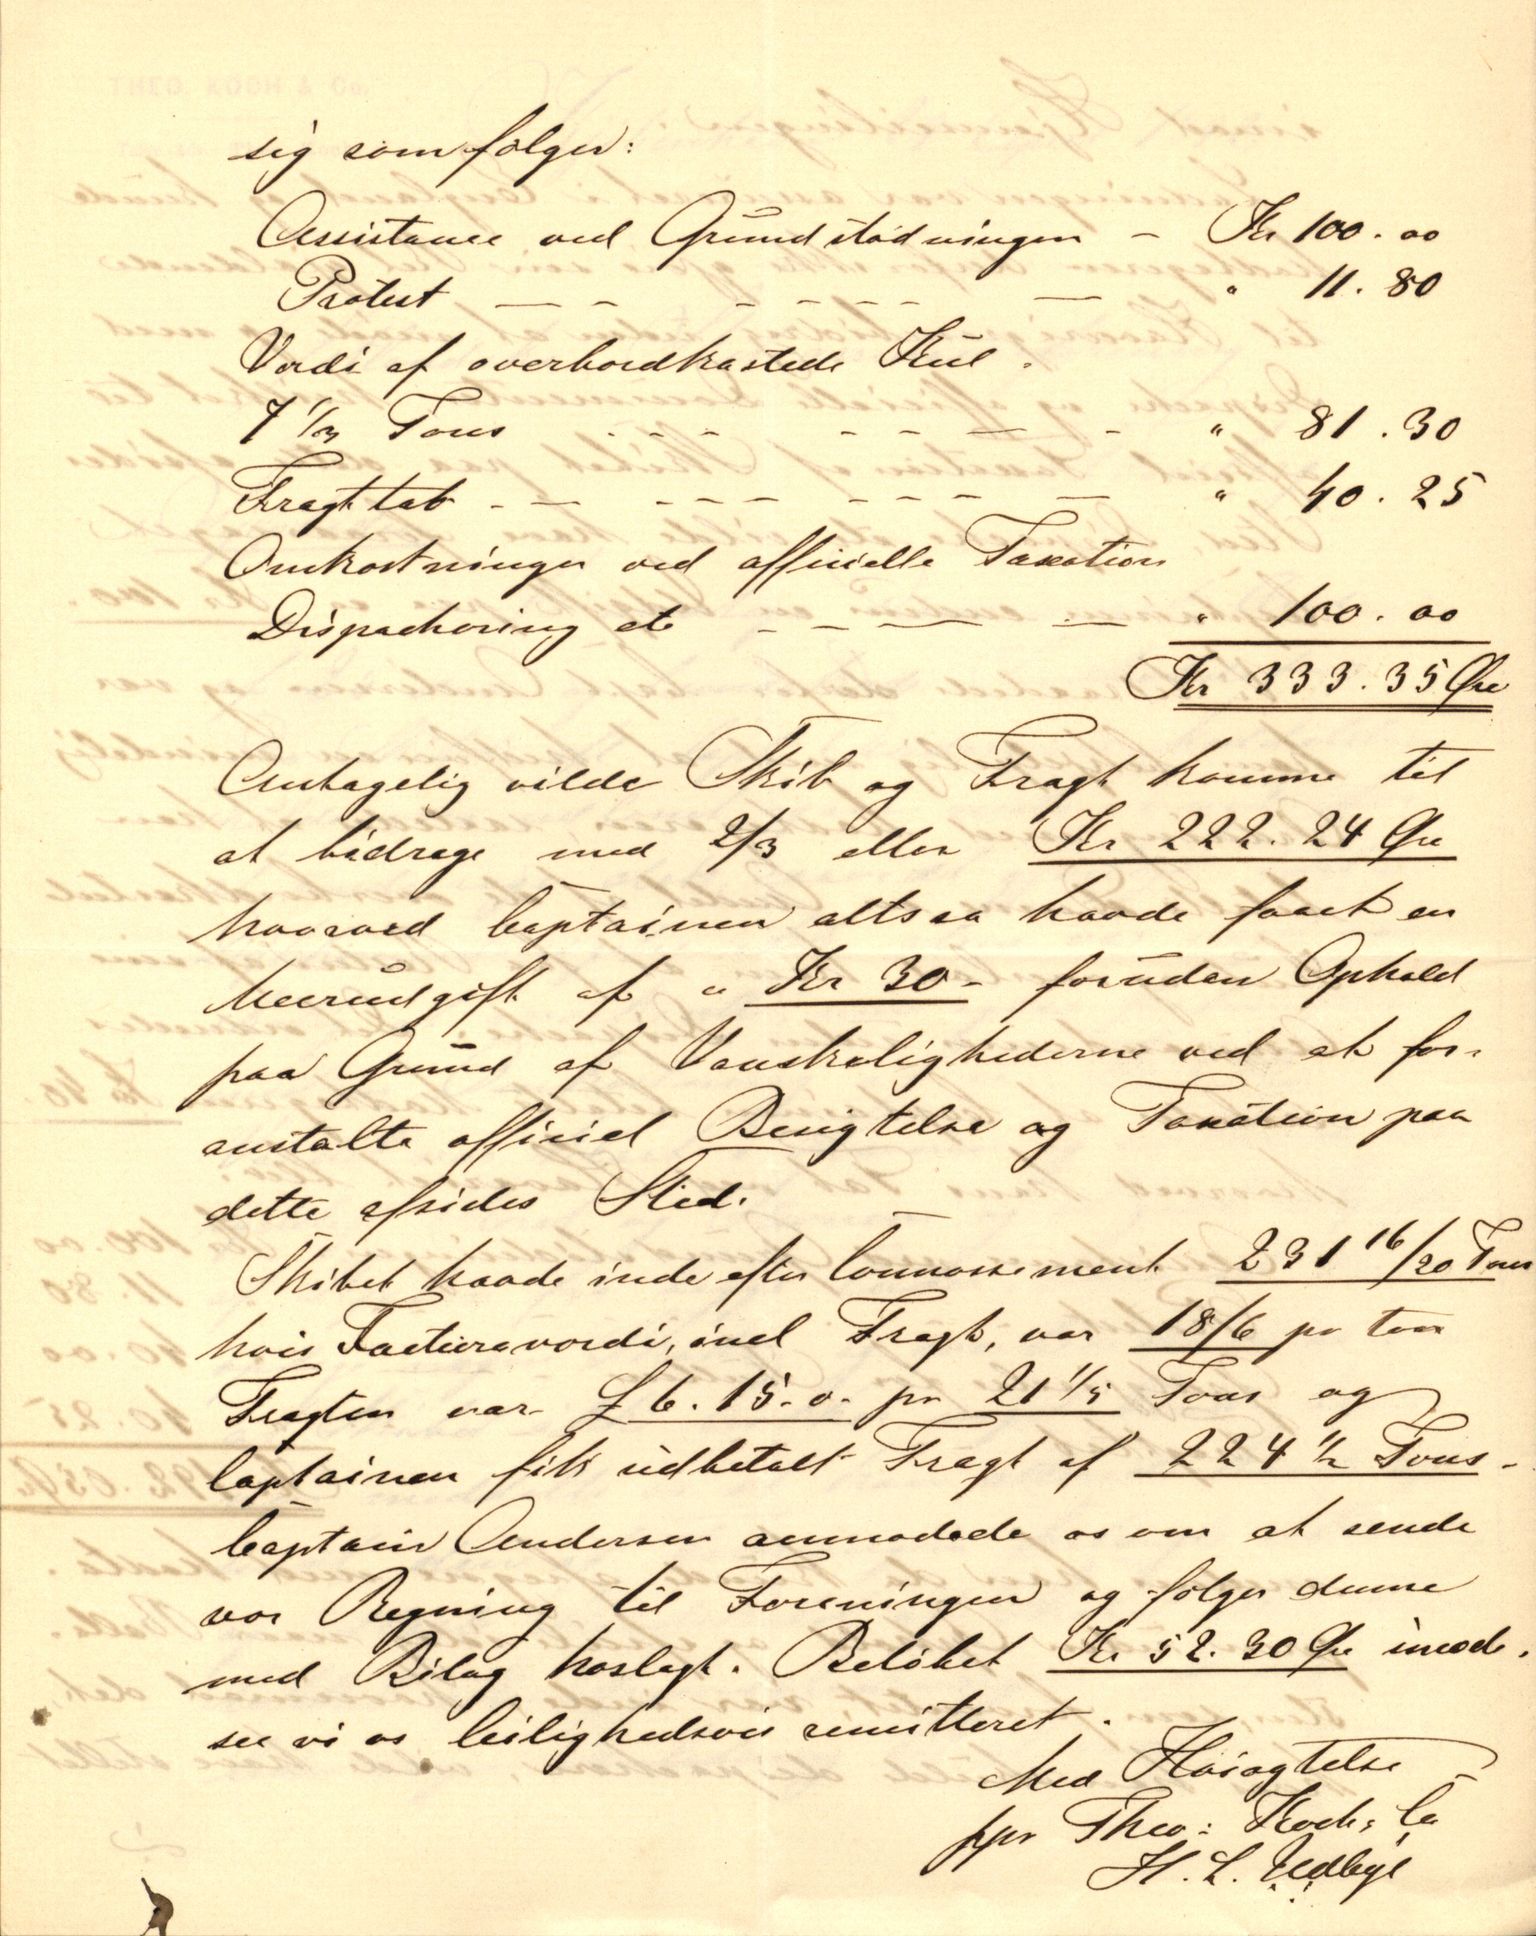 sig som følger:
Assistance ved Grundstødningen - Kr 100.00
Protest — - - - - - - — " 11.80
Værdi af overbordkastede Kul.
7 1/2 Tons - - - - - - — - " 81.30
Fragttab - — - - - - - - — " 40.25
Omkostninger ved officielle Taxation
Dispachering etc - - - — — " 100.00
Kr 333.35 Øre
Antagelig vilde Skib og Fragt komme til
at bidrage med 2/3 eller Kr 222.24 Øre
hvorved Captainen altsaa havde faaet en
Meerudgift af " Kr 30 - foruden Ophold
paa Grund af Vanskelighederne ved at for-
anstalte officiel Besigtelse og Taxation paa
dette afsides Sted.
Skibet havde inde efter Connossement 231 16/20 Tons
hvis Facturaværdi, incl Fragt, var 18/6 pr ton
Fragten var £ 6.15.0. pr 21 1/5 Tons og
Captainen fik udbetalt Fragt af 224 1/2 Tons -
Captain Andersen anmodede os om at sende
vor Regning til Foreningen og følger denne
med Bilag hoslagt. Beløbet Kr 52.30 Øre imøde-
see vi os leilighedsvis remitteret.
Med Høiagtelse
ppr Theo: Koch & Co
H. L. Udbye